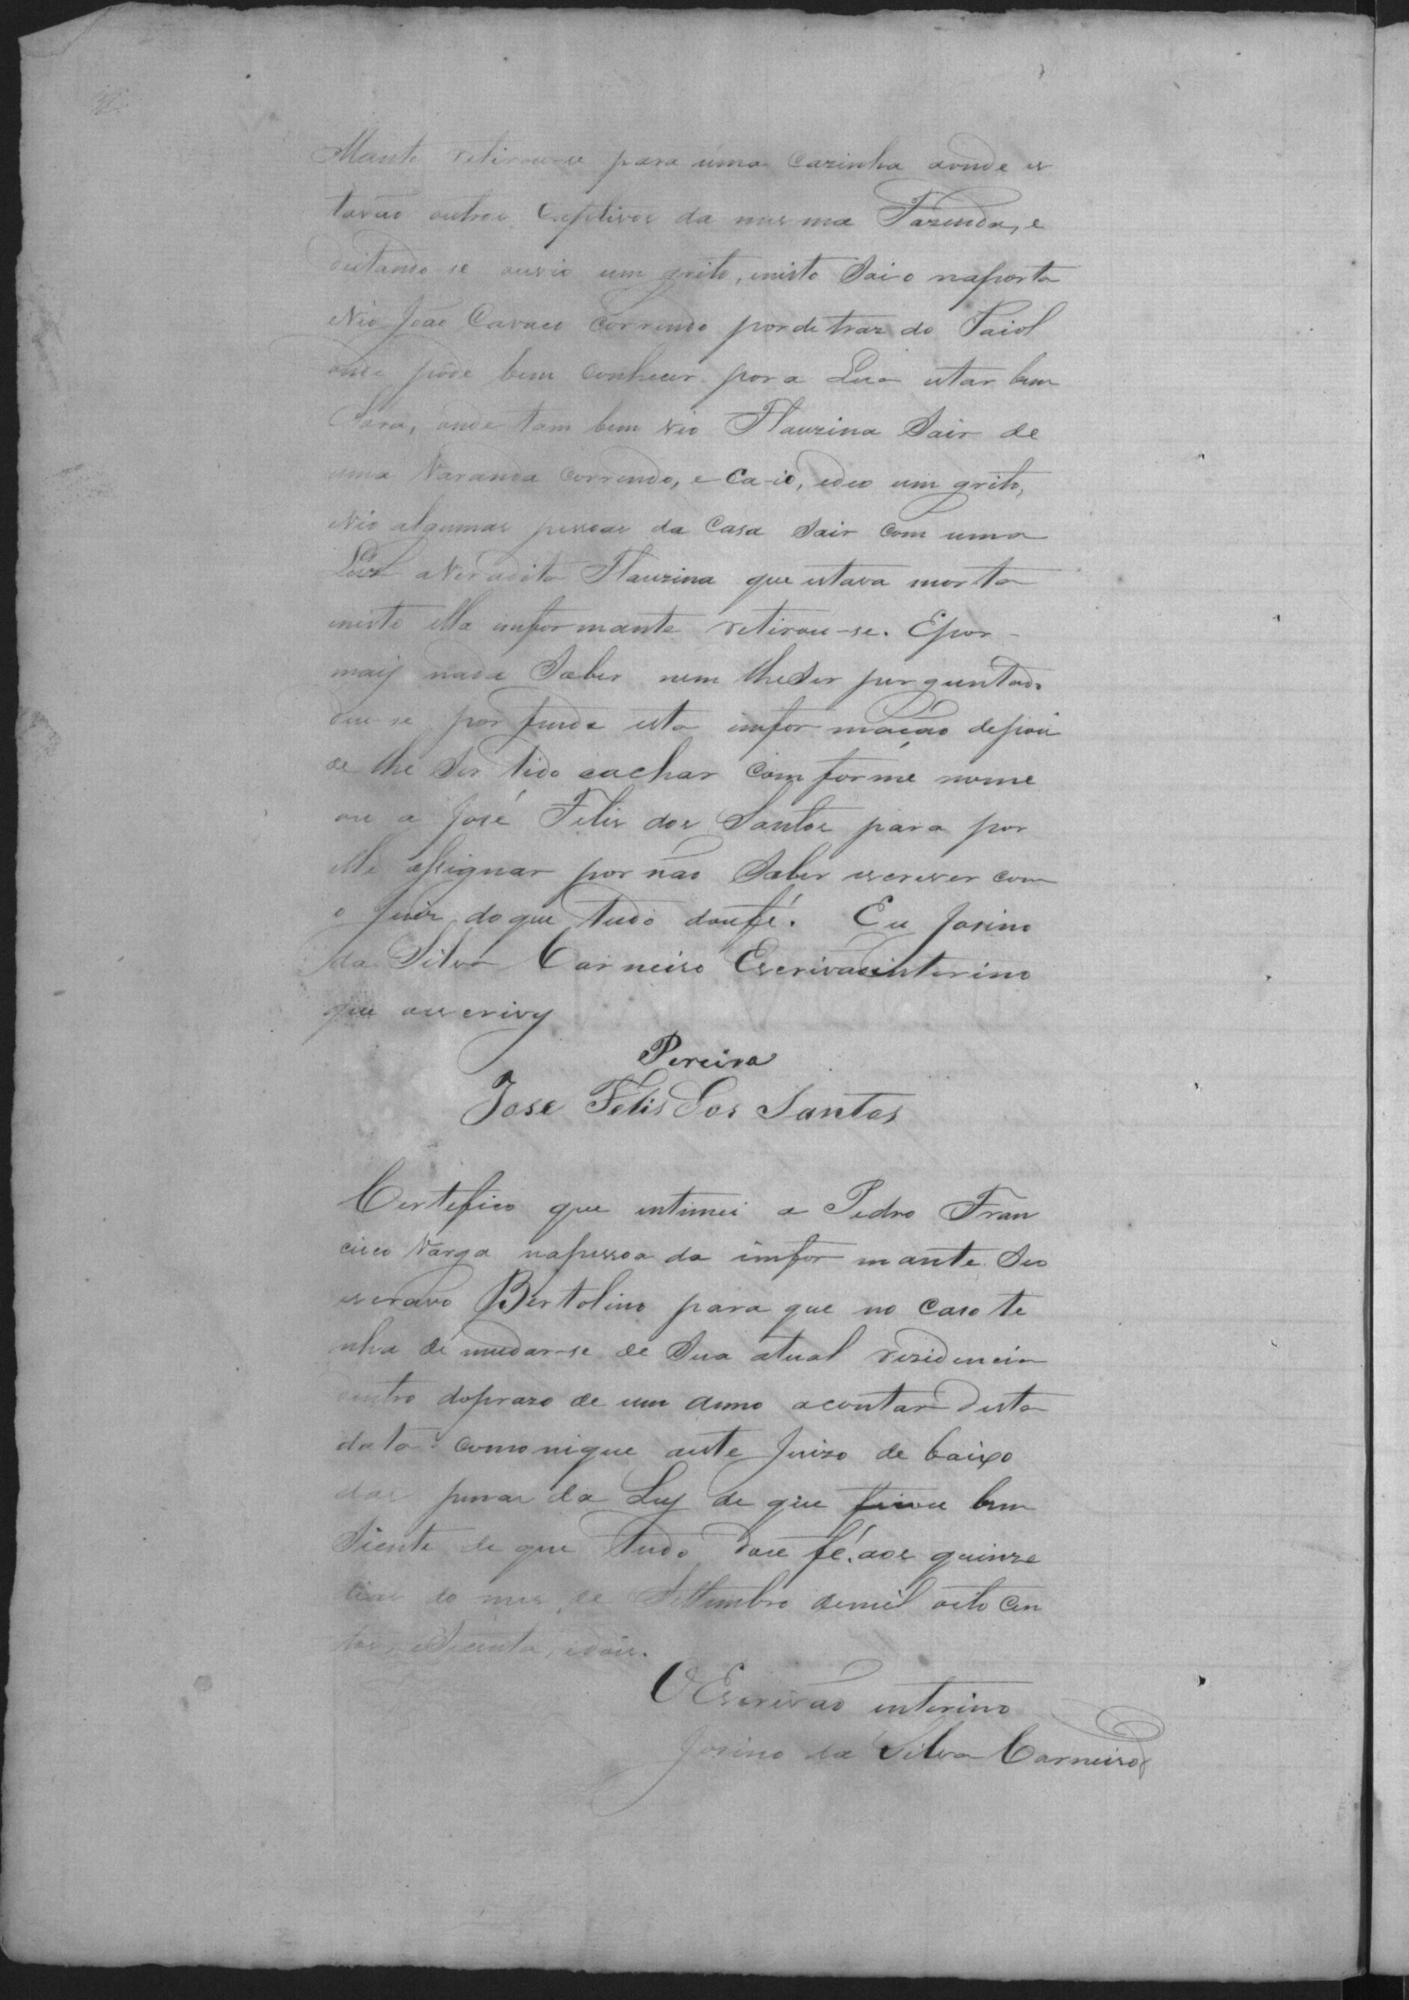 Mante retirou-se para uma Cazinha aonde es
tavão outros Captivos da mesma Fazenda, e
deitando-se ouvio um grito, nisto Saio naporta
Vio João Cavaco Correndo pordetraz do Paiol
onde pode bem Conhecer por a Lua estar bem
Clara, onde tam bem vio Flauzina Sair de
uma Varanda Correndo, e Ca-io, edeo um grito,
Vio algumas pessoas da Casa Sair Com uma
Luz aVer adita Flauzina que estava morta
nisto ella informante retirou-se. Epor-
mais nada Saber nem lheSer perguntado
deu-se por finda esta imfor mação depois
de lhe Ser lido eachar Com forme nome
ou a José Felis dos Santos para por
elle assignar por não Saber escrever com
o Juiz, doque tudo doufé. Eu Josino
da Silva Carneiro Escrivãointerino
que oescrivy
Pereira
Jose Felis Dos Santos
Certefico que intimei a Pedro Fran
cisco Varga napessoa da imfor mante Seo
escravo Bertolino para que no Caso te
nha de mudar-se de Sua atual residencia
dentro doprazo de um anno acontar desta
data comonique aeste Juizo de baixo
das penas da Ley de que ficou bem
Siente de que tudo dou fé. aos quinze
dias do mes de Settembro demil oito Cen
tos, eSetenta, edois.
OEscrivão interino
Josino da Silva Carneiro